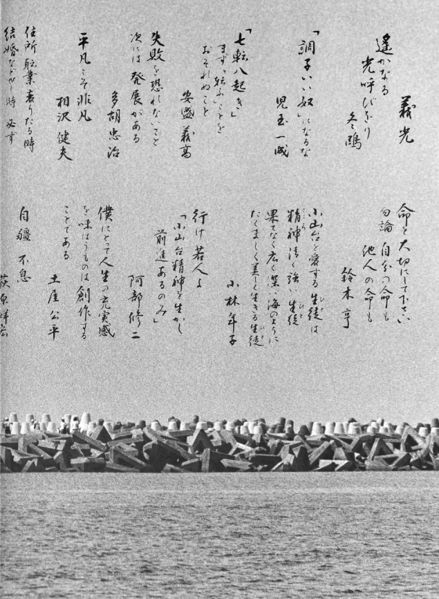 義光
遙かなる
光呼びをり
「調子いい奴」になるな
児玉一誠
「七転八起き」
まず、転ぶことを
おそれぬこと
安盛義高
失敗を恐れないこと
次には発展がある
多胡忠治
平凡こそ非凡
相沢健夫
住所職業 変りたる時
結婚などの時
命を大切にして下さい
勿論 自分の命も
他人の命も
鈴木亨
小山台を愛する生徒は
精神清く強い生徒
果てなく広く深い海のように
たくましく美しく生きる生徒
小林年子
行け若人よ
「小山台精神を生かし
前進あるのみ」
阿部修二
僕にとって人生の充実感
を味はうものは創作する
ことである
土屋公平
自彊不息